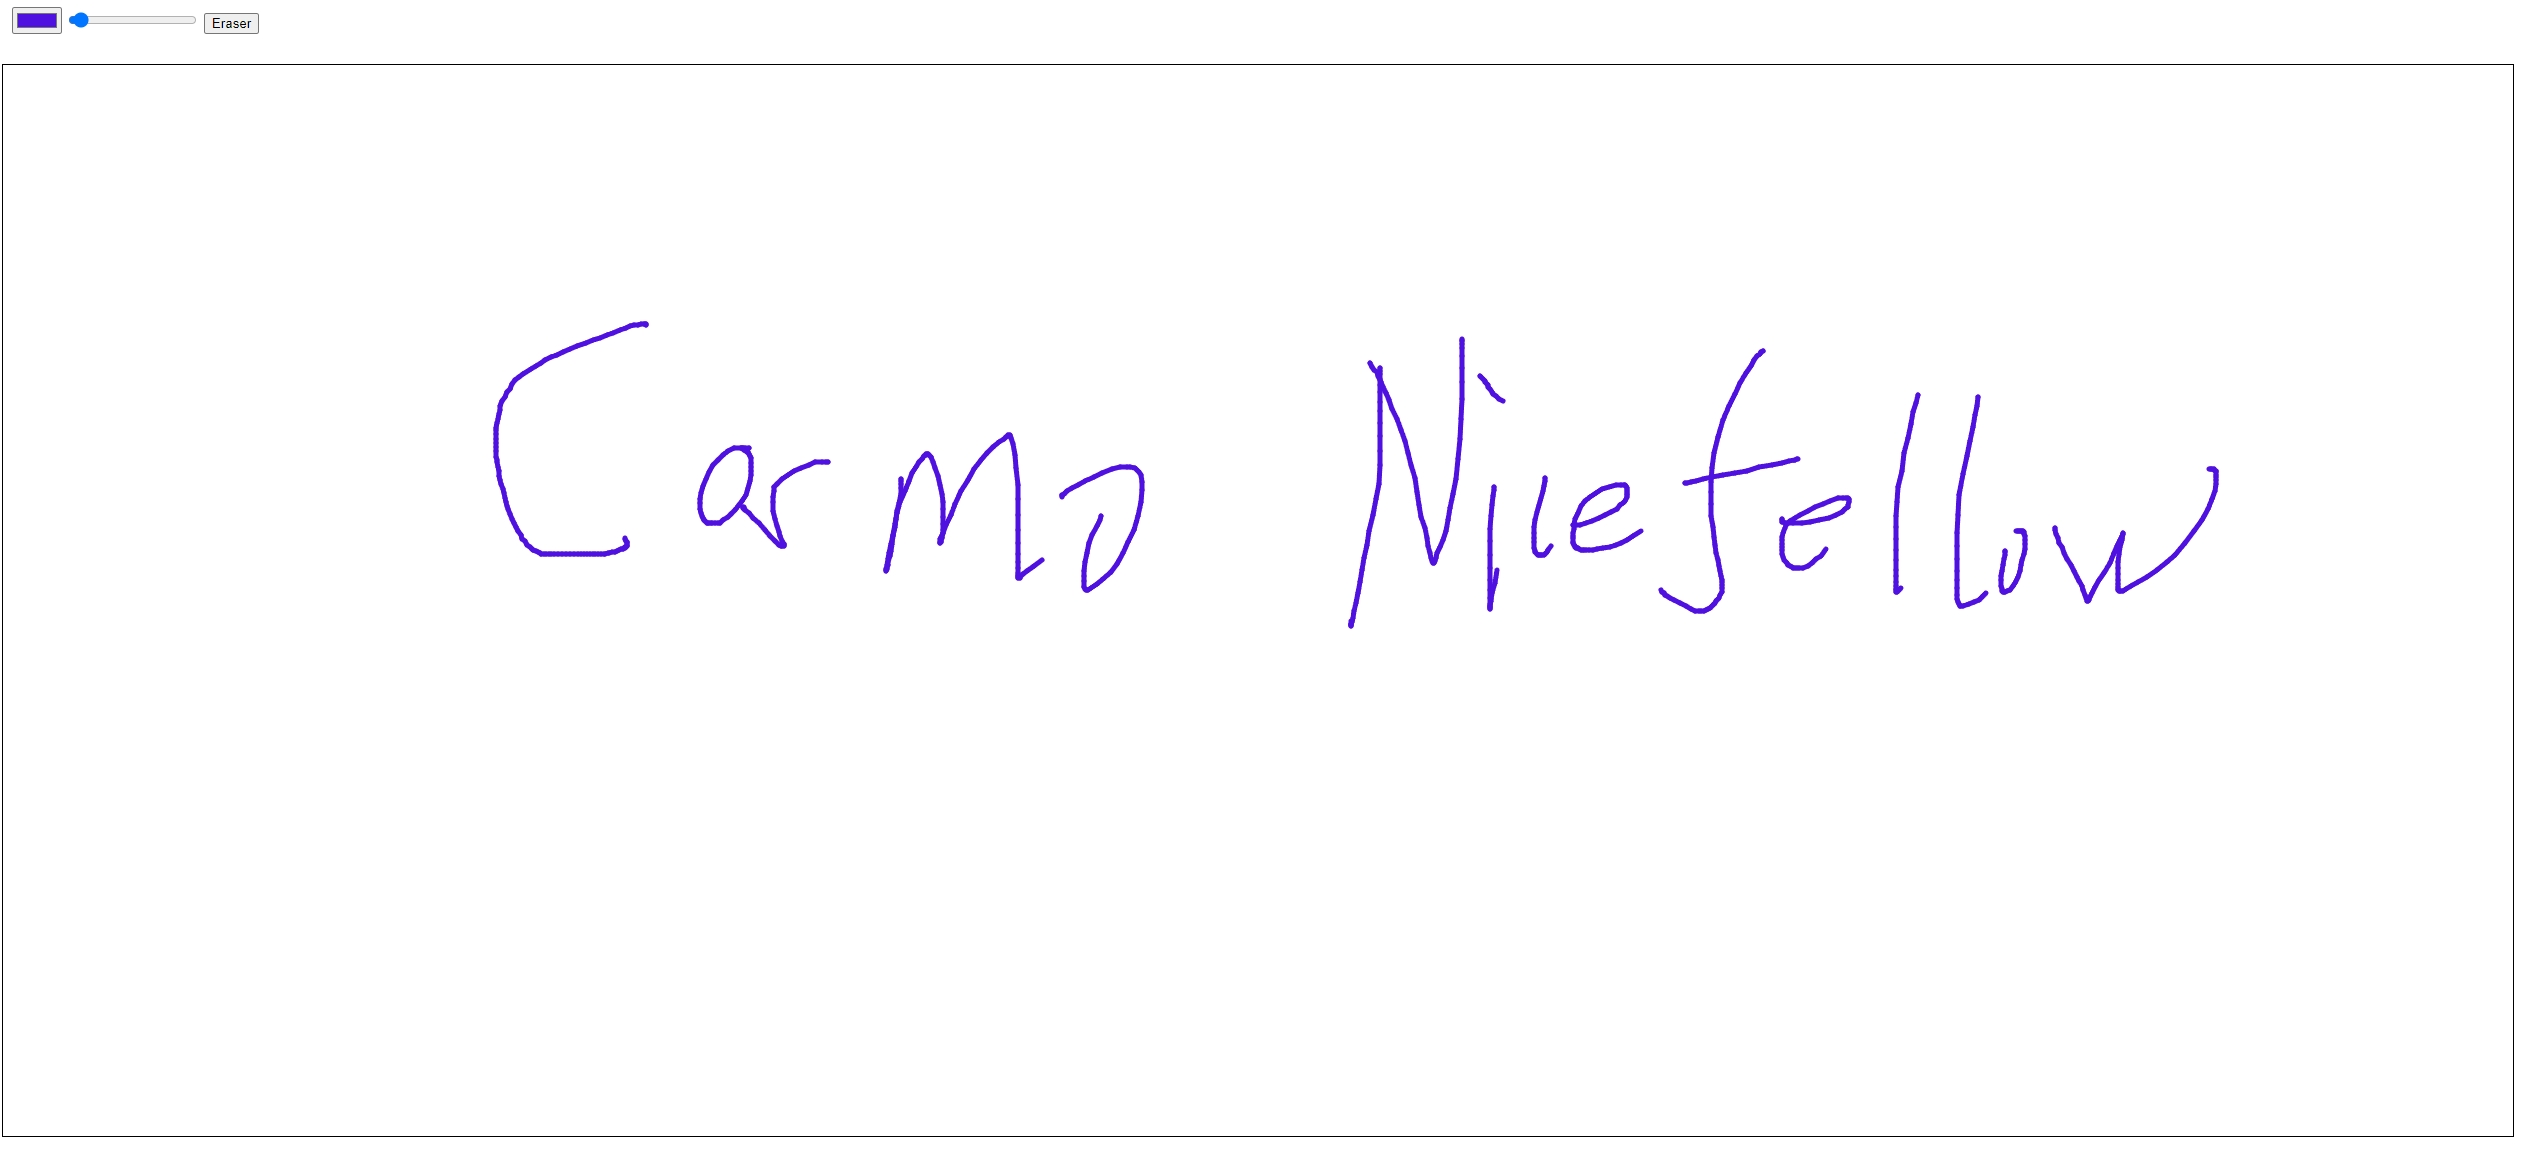 Eraser
Carmo Niefellow